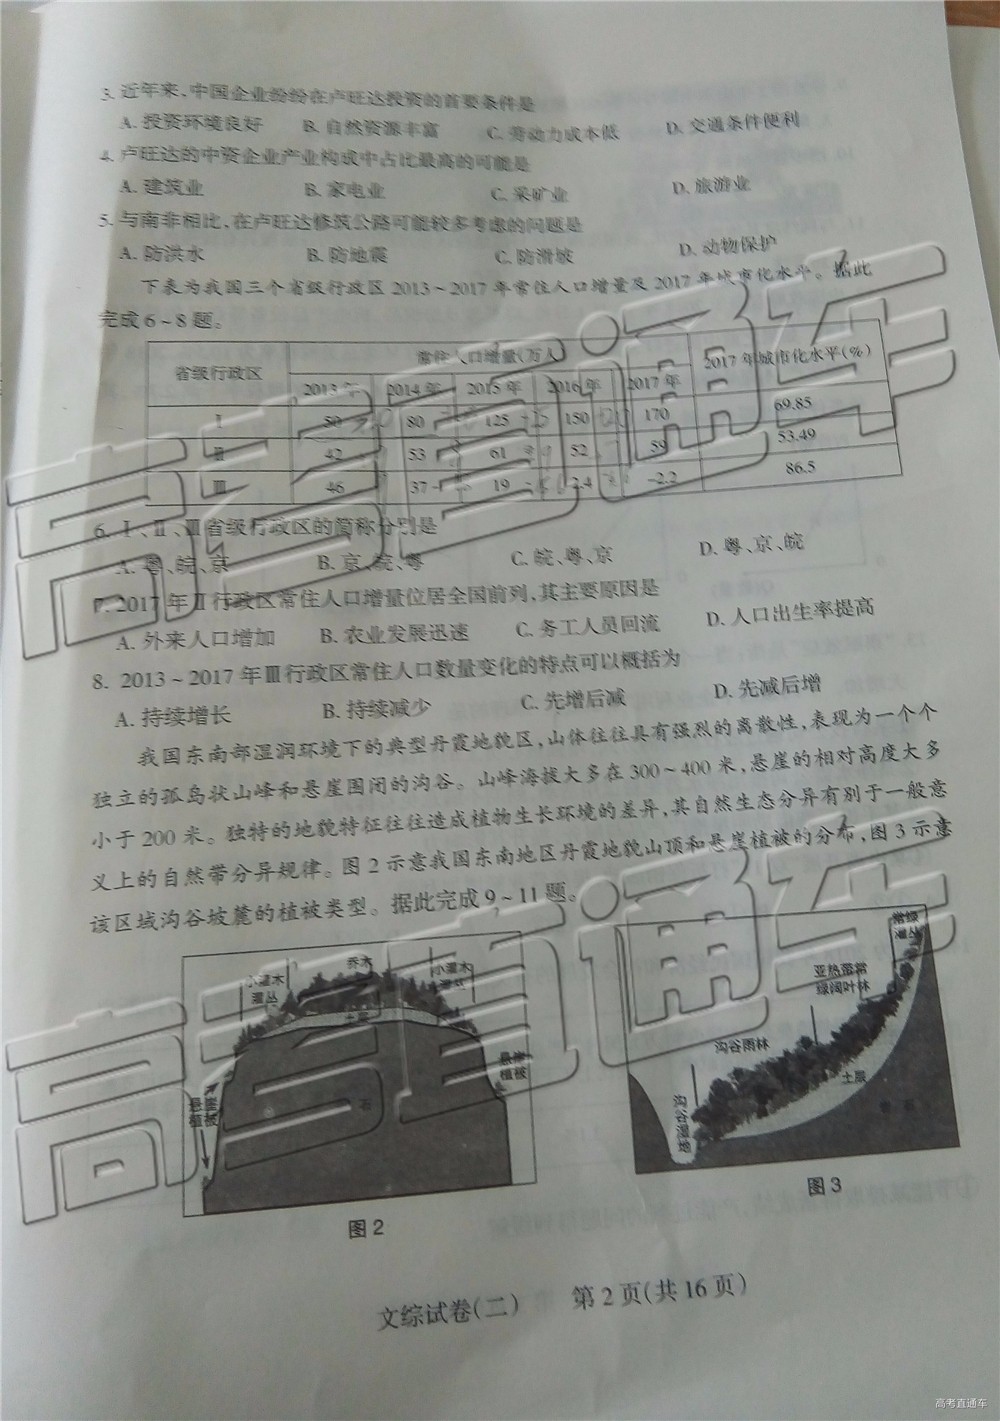 3. 近年来,中国企业纷纷在卢旺达投资的首要条件是
A. 投资环境良好 B. 自然资源丰富 C. 劳动力成本低 D. 交通条件便利
4. 卢旺达的中资企业产业构成中占比最高的可能是
A. 建筑业 B. 家电业 C. 采矿业 D. 旅游业
5. 与南非相比,在卢旺达修筑公路可能较多考虑的问题是
A. 防洪水 B. 防地震 C. 防滑坡 D. 动物保护
下表为我国三个省级行政区 2013~2017 年常住人口增量及 2017 年城市化水平。据此
完成 6~8 题。
省级行政区 常住人口增量(万人) 2017 年城市化水平(%)
2013 年 2014 年 2015 年 2016 年 2017 年
Ⅰ 50 80 125 150 170 69.85
Ⅱ 42 53 61 52 59 53.49
Ⅲ 46 37 19 2.4 -2.2 86.5
6. Ⅰ、Ⅱ、Ⅲ省级行政区的简称分别是
A. 粤、皖、京 B. 京、皖、粤 C. 皖、粤、京 D. 粤、京、皖
7. 2017 年Ⅱ行政区常住人口增量位居全国前列,其主要原因是
A. 外来人口增加 B. 农业发展迅速 C. 务工人员回流 D. 人口出生率提高
8. 2013~2017 年Ⅲ行政区常住人口数量变化的特点可以概括为
A. 持续增长 B. 持续减少 C. 先增后减 D. 先减后增
我国东南部湿润环境下的典型丹霞地貌区,山体往往具有强烈的离散性,表现为一个个
独立的孤岛状山峰和悬崖围闭的沟谷。山峰海拔大多在 300~400 米,悬崖的相对高度大多
小于 200 米。独特的地貌特征往往造成植物生长环境的差异,其自然生态分异有别于一般意
义上的自然带分异规律。图 2 示意我国东南地区丹霞地貌山顶和悬崖植被的分布,图 3 示意
该区域沟谷坡麓的植被类型。据此完成 9~11 题。
小灌木
灌丛
乔木
小灌木
灌丛
土层
悬崖
植被
悬崖
植被
石
图 2
常绿
灌丛
亚热带常
绿阔叶林
沟谷雨林
土层
沟谷湿地
图 3
文综试卷(二) 第 2 页(共 16 页)
高考直通车
高考直通车
高考直通车